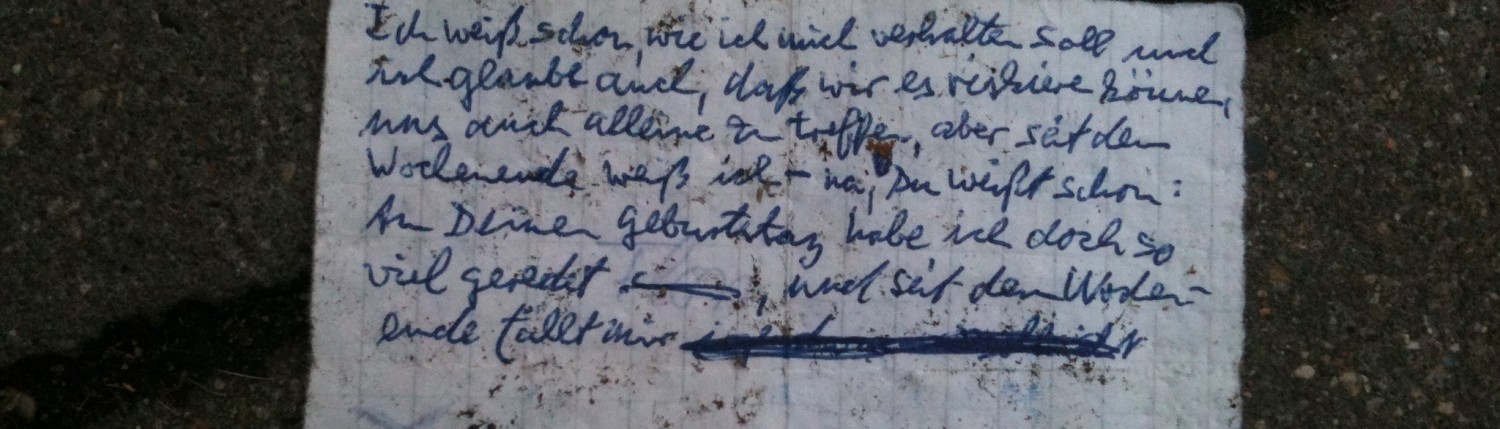 Ich weiß schon, wie ich mich verhalten soll und
ich glaube auch, daß wir es riskieren können,
uns auch alleine zu treffen, aber seit dem
Wochenende weiß ich – na, Du weißt schon:
An Deinem Geburtstag habe ich doch so
viel geredet , und seit dem Wochen-
ende fällt mir